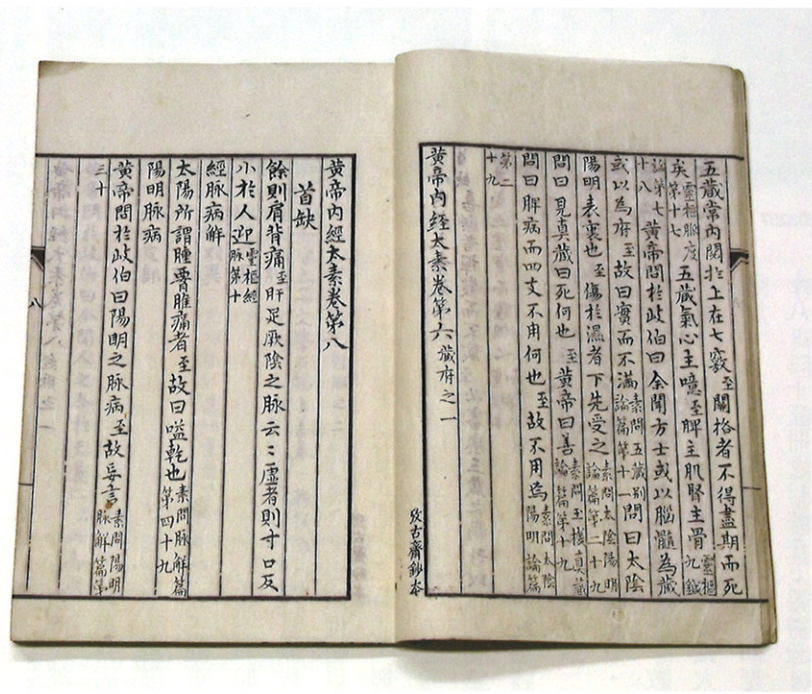 五藏常內閱於上在七竅至關格者不得盡期而死靈樞
矣靈樞脉度第十七五藏氣心主噫至脾主肌腎主骨九鍼
論第七十八黃帝問於歧伯曰余聞方士或以腦髓為藏
或以為府至故曰實而不滿素問五藏別論篇第十一問曰太陰
陽明表裏也至傷於濕者下先受之素問太陰陽明論篇第二十九
問曰見真藏曰死何也至黃帝曰善素問玉機真藏論篇第十九
問曰脾病而四支不用何也至故不用焉素問太陰陽明論篇
第二十九
黃帝內經太素卷第六藏府之一
攷古齋鈔本
黃帝內經太素卷第八
首缺
餘則肩背痛至肝足厥陰之脉云〻虛者則寸口反
小於人迎靈樞經脉第十
經脉病解
太陽所謂腫要脽痛者至故曰嗌乾也素問脉解篇第四十九
陽明脉病
黃帝問於歧伯曰陽明之脉病至故妄言素問陽明脉解篇第
三十
八